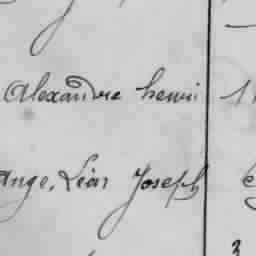 Alexandre henri
Ange, Léon Joseph